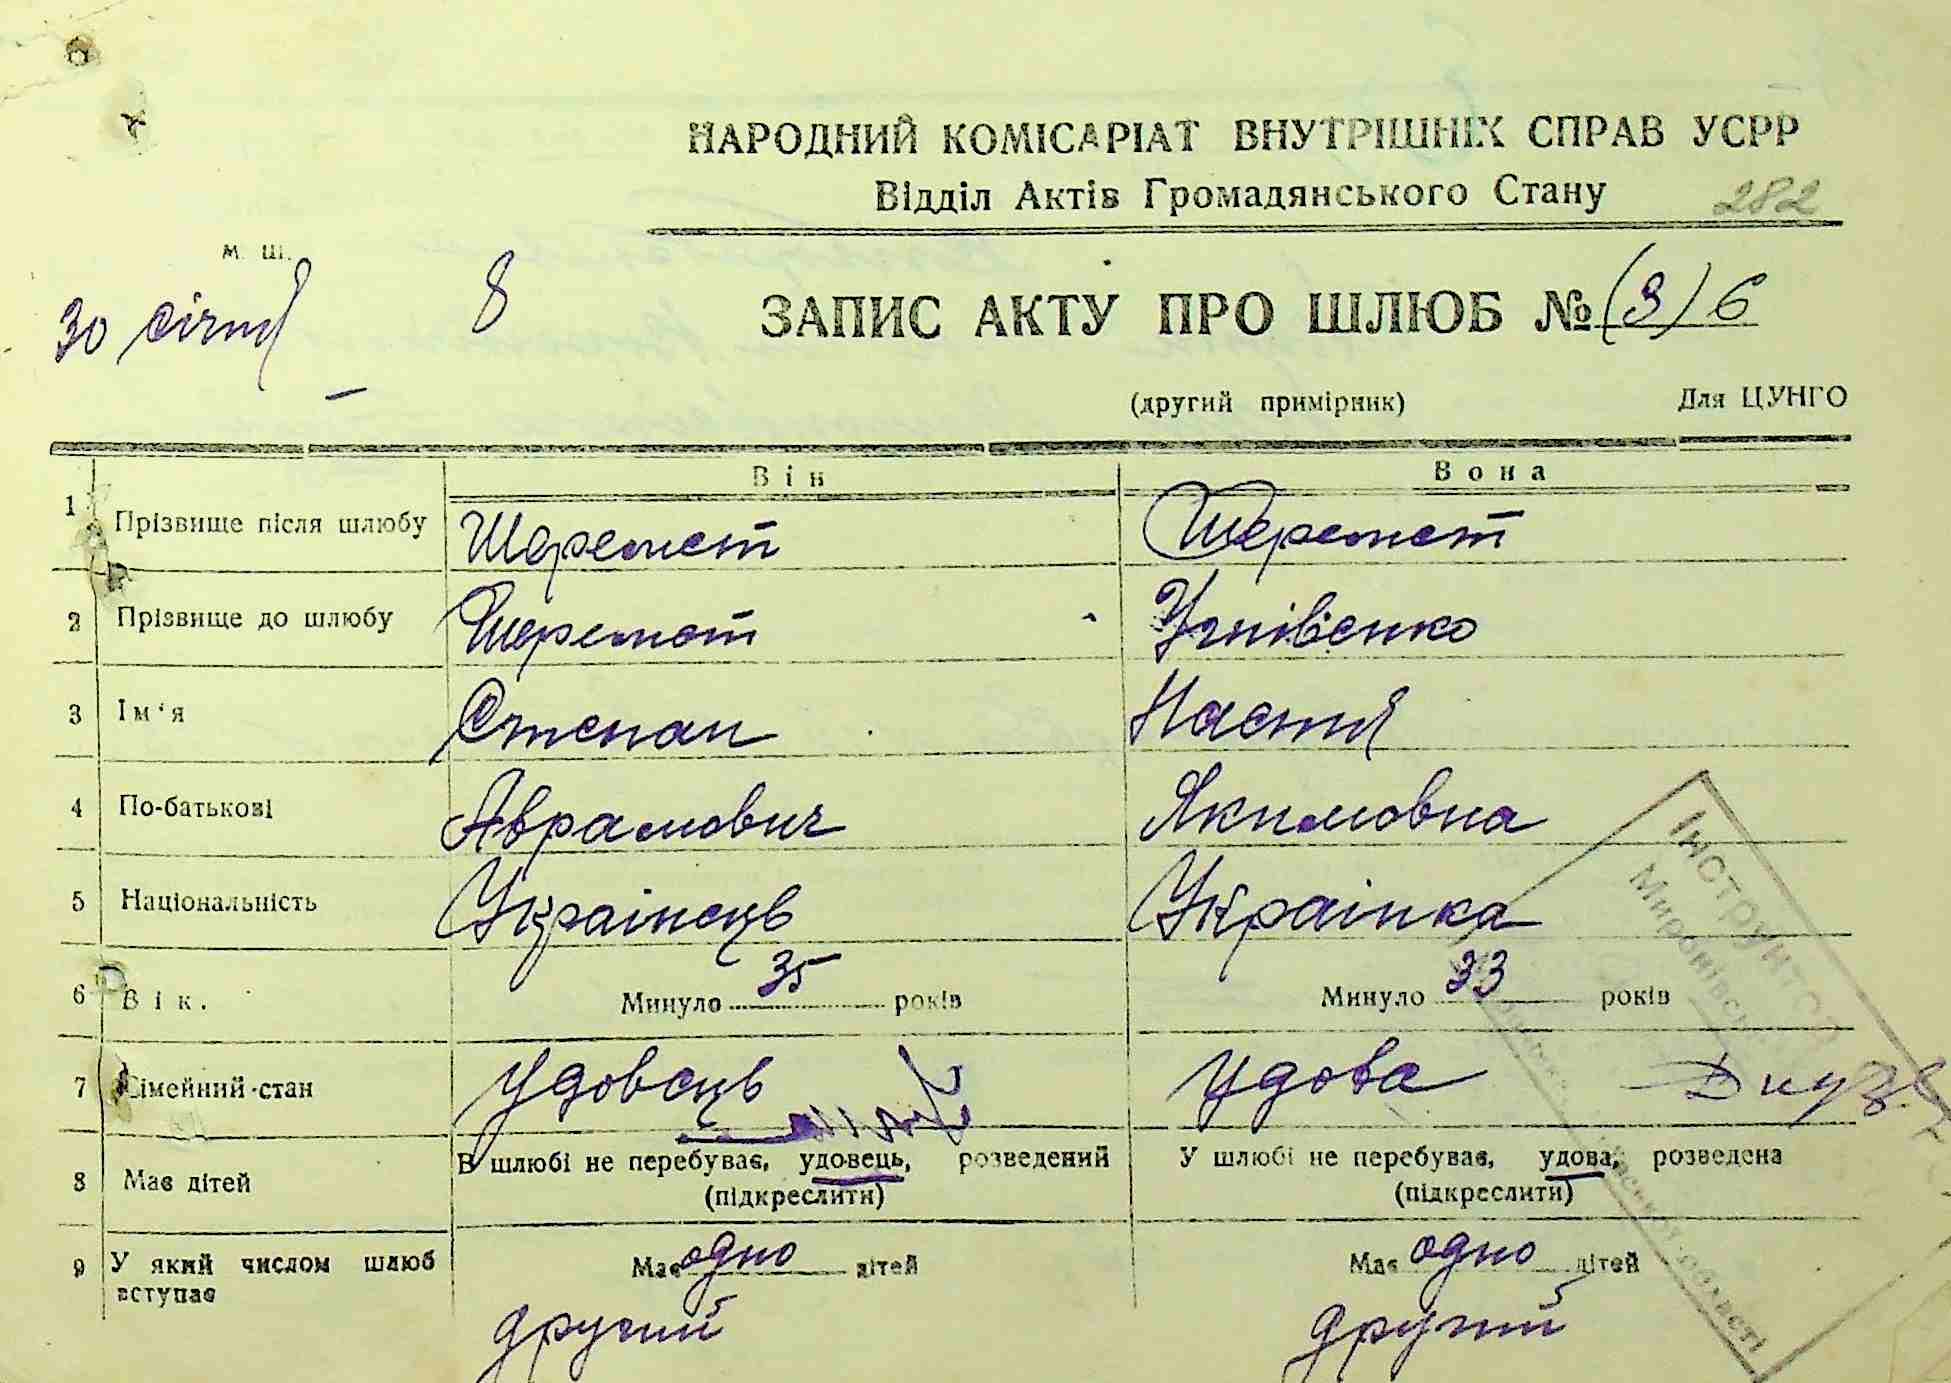 НАРОДНИЙ КОМІСАРІАТ ВНУТРІШНІХ СПРАВ УСРР
Відділ Актів Громадянського Стану 282
м. ш.
30 січня 8 ЗАПИС АКТУ ПРО ШЛЮБ № (3) 6
(другий примірник) Для ЦУНГО
Він Вона
1 Прізвище після шлюбу Шеремет Шеремет
2 Прізвище до шлюбу Шеремет Угнівенко
3 Ім'я Степан Настя
4 По-батькові Аврамович Якимовна
5 Національність Українець Українка
6 Вік. Минуло 35 років Минуло 33 років
7 Сімейний стан удовець удова
В шлюбі не перебуває, удовець, розведений У шлюбі не перебуває, удова, розведена
8 Має дітей (підкреслити) (підкреслити)
9 У який числом шлюб вступає Має одно дітей Має одно дітей
другий другий
Інструктор
Миронівськ